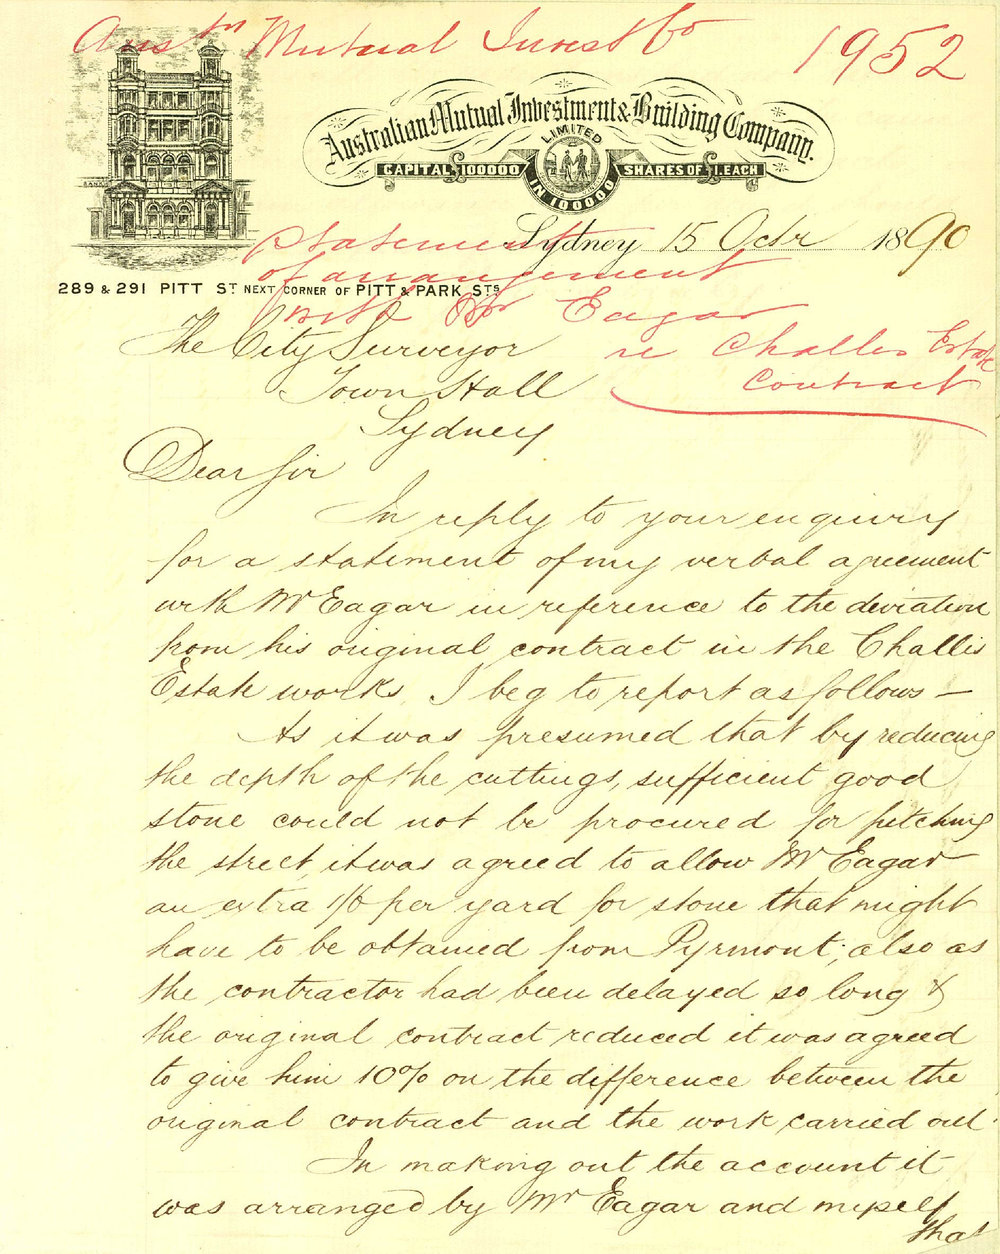 Austn Mutual Invest Co
1952
Australian Mutual Investment & Building Company.
LIMITED
CAPITAL £100000 IN 100000 SHARES OF £1. EACH
Sydney 15 Octr 1890
289 & 291 PITT ST NEXT CORNER OF PITT & PARK STS
Statement
of arrangement
with Mr Eagar
re Challis Estate
Contract
The City Surveyor
Town Hall
Sydney
Dear Sir
In reply to your enquiry
for a statement of my verbal agreement
with Mr Eagar in reference to the deviation
from his original contract in the Challis
Estate works, I beg to report as follows —
As it was presumed that by reducing
the depth of the cuttings, sufficient good
stone could not be procured for pitching
the street, it was agreed to allow Mr Eagar
an extra 1/6 per yard for stone that might
have to be obtained from Pyrmont; also as
the contractor had been delayed so long &
the original contract reduced it was agreed
to give him 10% on the difference between the
original contract and the work carried out
In making out the account it
was arranged by Mr Eagar and myself
that